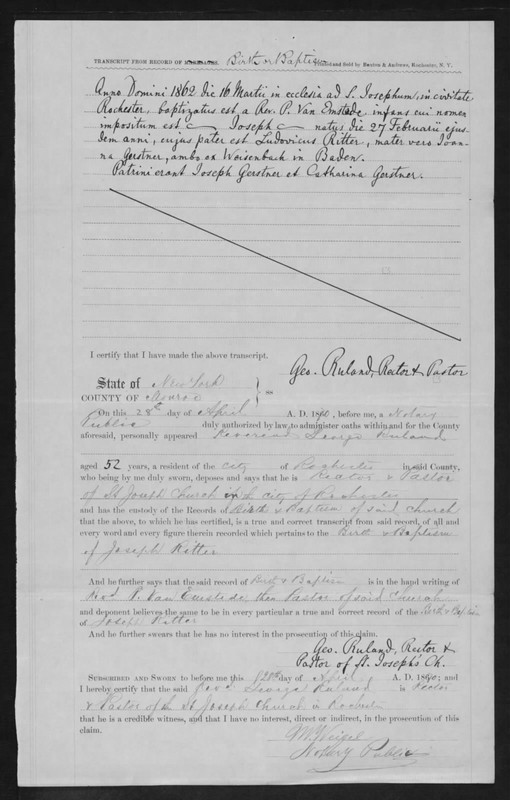 TRANSCRIPT FROM RECORD OF MARRIAGE. Birth or Baptism and sold by Scrantom & Andrews, Rochester, N. Y.
Anno Domini 1862 die 16 Martii in ecclesia ad S. Josephum, in civitate
Rochester, baptizatus est a Rev. P. Van Emstede, infans cui nomen
impositum est Joseph natus die 27 Februarii ejus
dem anni, cujus pater est Ludovicus Ritter, mater vero Joan-
na Gerstner, ambo ex Weisenbach in Baden.
Patrini erant Joseph Gerstner et Catharina Gerstner.
I certify that I have made the above transcript.
Geo. Ruland, Rector & Pastor
State of New York
COUNTY OF Monroe } ss
On this 28th day of April A. D. 1890, before me, a Notary
Public duly authorized by law to administer oaths within and for the County
aforesaid, personally appeared Reverend George Ruland
aged 52 years, a resident of the city of Rochester in said County,
who being by me duly sworn, deposes and says that he is Rector & Pastor
of St Joseph Church in city of Rochester
and has the custody of the Records of Birth & Baptism of said church
that the above, to which he has certified, is a true and correct transcript from said record, of all and
every word and every figure therein recorded which pertains to the Birth & Baptism
of Joseph Ritter
And he further says that the said record of Birth & Baptism is in the hand writing of
Rev. P. Van Emstede then Pastor of said Church
and deponent believes the same to be in every particular a true and correct record of the Birth & Baptism
of Joseph Ritter
And he further swears that he has no interest in the prosecution of this claim.
Geo. Ruland, Rector &
Pastor of St. Joseph's Ch.
SUBSCRIBED AND SWORN to before me this 28th day of April A. D. 1890; and
I hereby certify that the said Rev. George Ruland is Rector
& Pastor of St Joseph Church in Rochester
that he is a credible witness, and that I have no interest, direct or indirect, in the prosecution of this
claim.
Notary Public